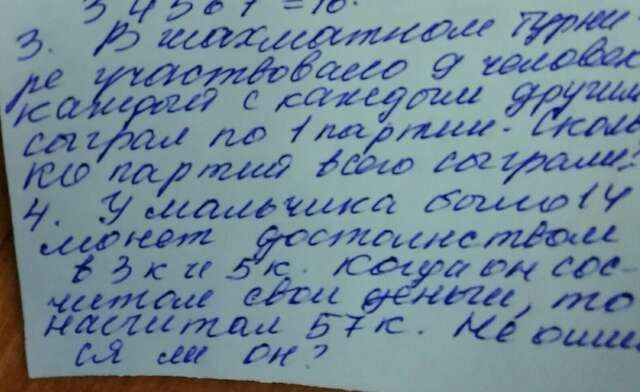 3 4 5 6 7 = 10.
3. В шахматном турни
ре участвовало 9 человек
каждый с каждым другим
сыграл по 1 партии. Сколь
ко партий всего сыграли?
4. У мальчика было 14
монет достоинством
в 3 к и 5 к. Когда он сос-
читал свои деньги, то
насчитал 57 к. Не ошиб
ся ли он?